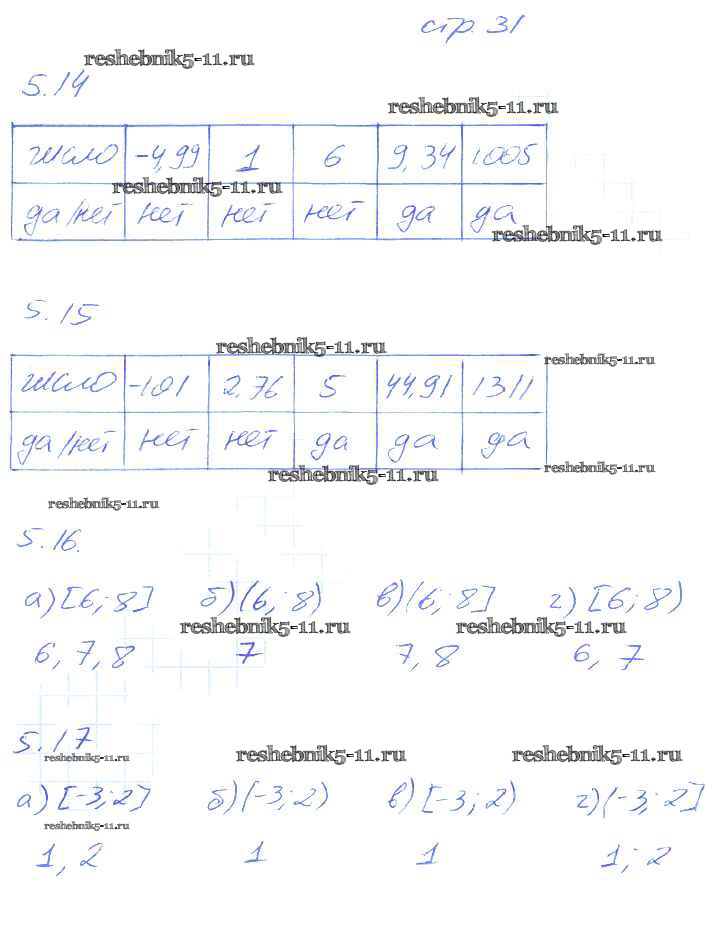 стр. 31
reshebnik5-11.ru
5.14
reshebnik5-11.ru
число -4,99 1 6 9,34 1005
reshebnik5-11.ru
да/нет нет нет нет да да
reshebnik5-11.ru
5.15
reshebnik5-11.ru
reshebnik5-11.ru
число -101 2,76 5 44,91 1311
да/нет нет нет да да да
reshebnik5-11.ru
reshebnik5-11.ru
reshebnik5-11.ru
5.16.
а) [6; 8] б) (6; 8) в) (6; 8] г) [6; 8)
reshebnik5-11.ru reshebnik5-11.ru
6, 7, 8 7 7, 8 6, 7
5.17
reshebnik5-11.ru reshebnik5-11.ru reshebnik5-11.ru
а) [-3; 2] б) (-3; 2) в) [-3; 2) г) (-3; 2]
reshebnik5-11.ru
1, 2 1 1 1; 2